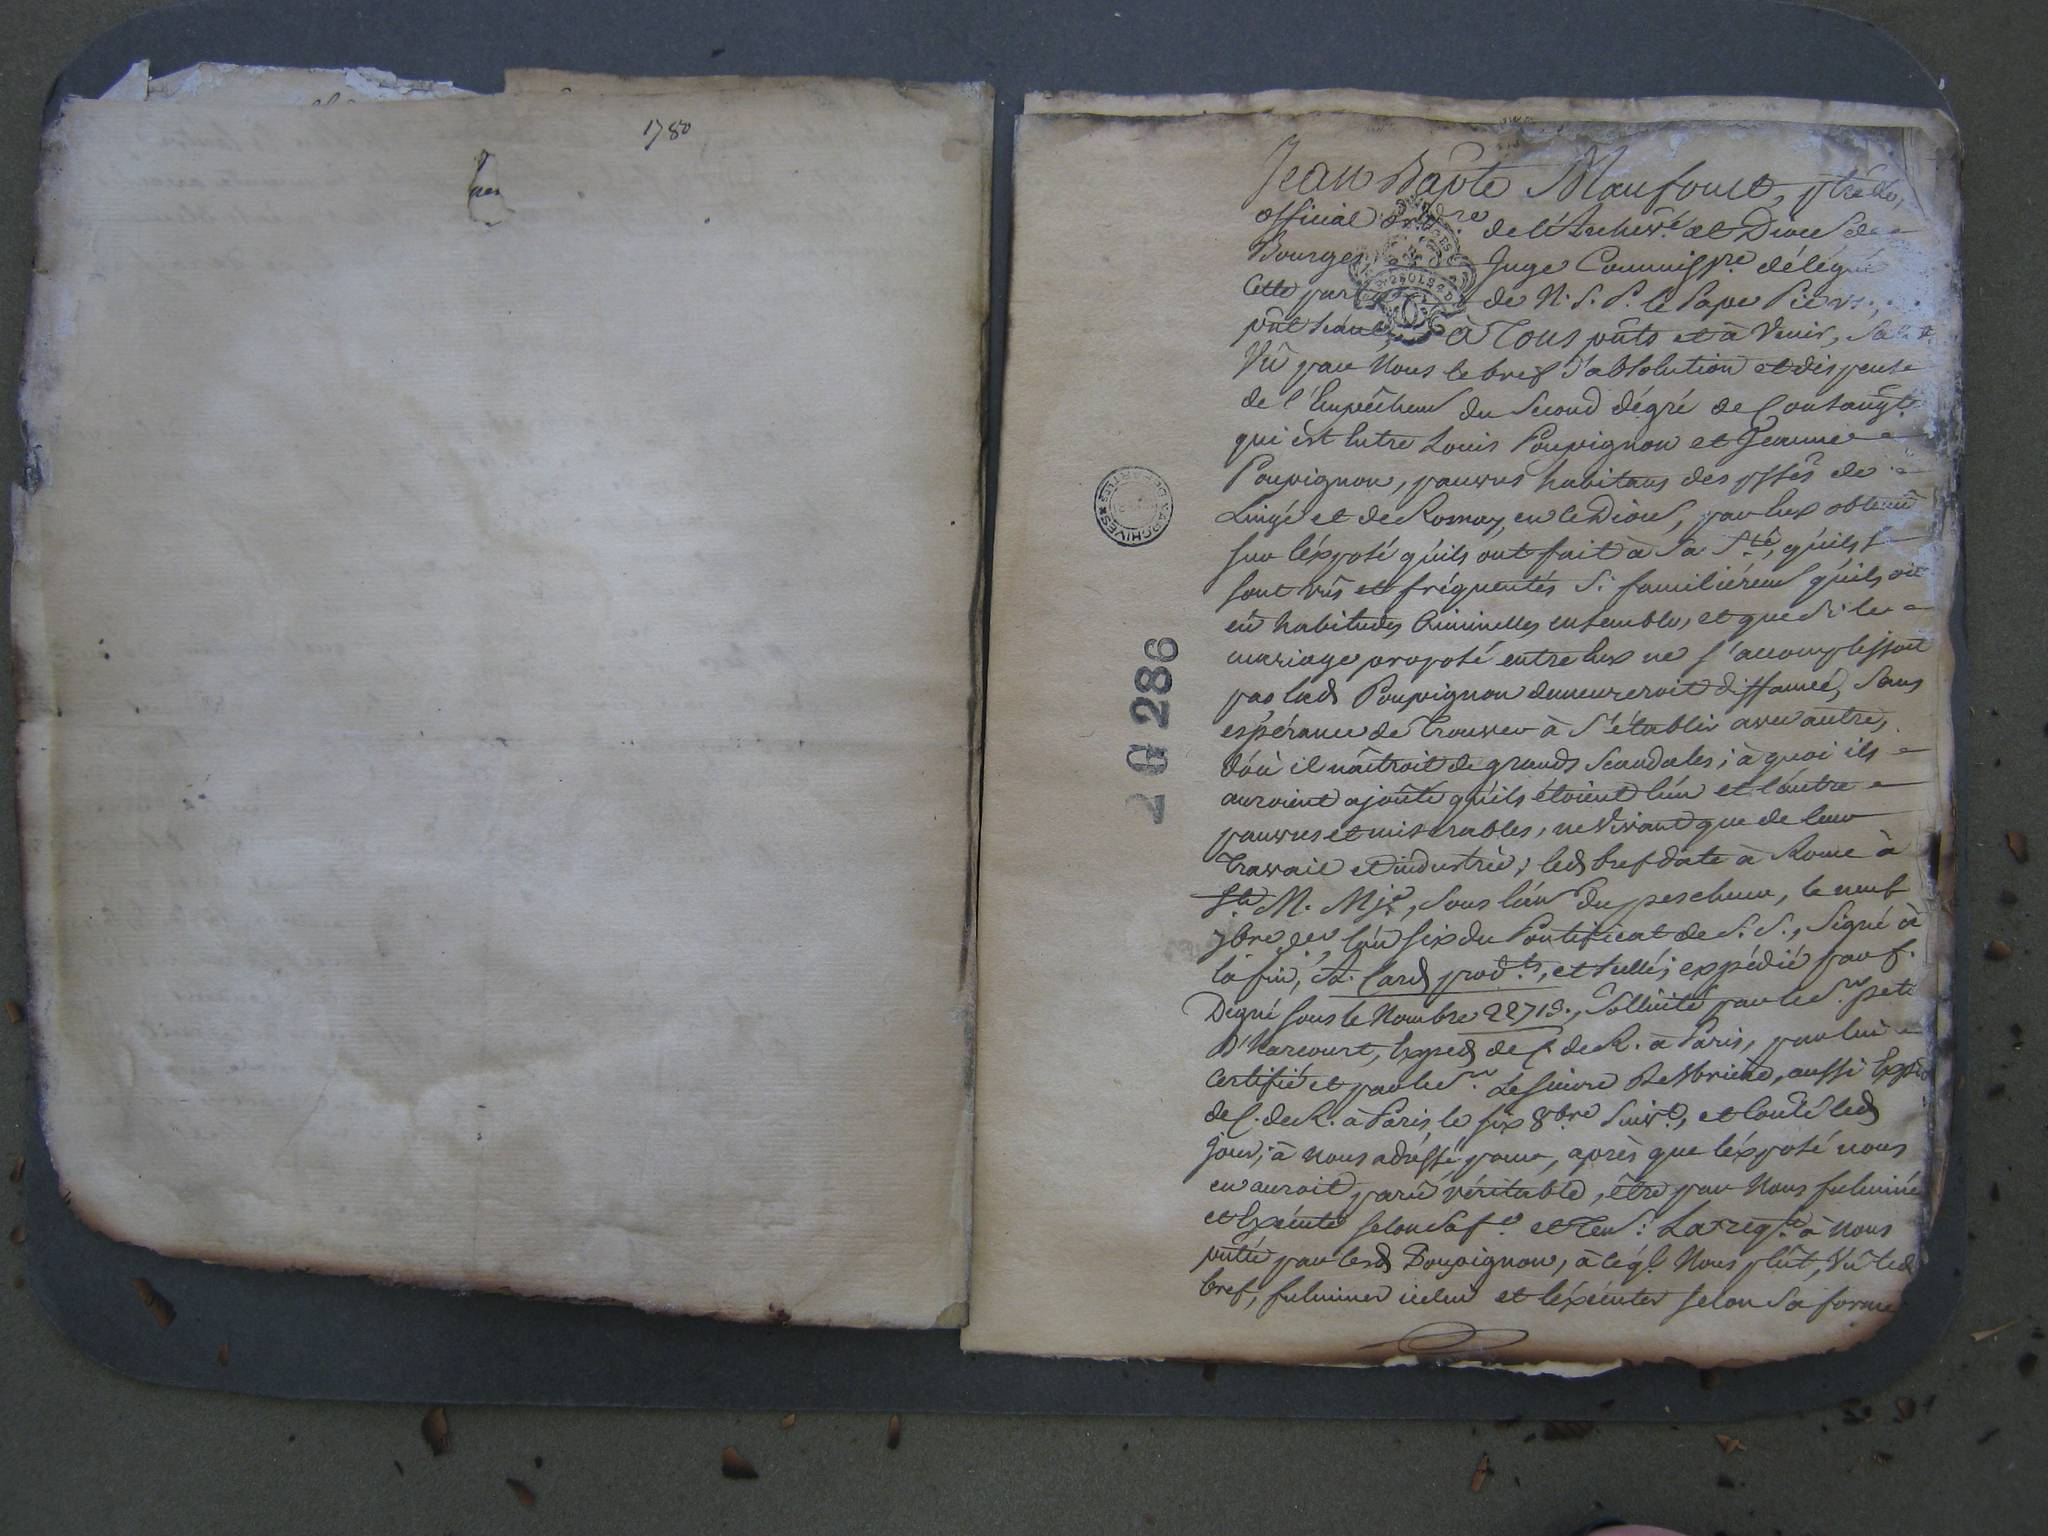 1780
Jean Bapte Maufoult, ptre
official de l'Archevé et Diocse de
Bourges, Juge Commissre délégué en
Cette par de N. S. P. le Pape Pie vi,
pnt séant, à Tous pnts et à Venir, Salut
Vû par Nous le bref d'absolution et dispense
de l'Empêchemt du Second dégré de Consangté
qui est Entre Louis Poupignon et Jeanne
Poupignon, pauvres habitans des psses de
Lingé et de Rosnay, en ce Diocse, par Eux obtenu
sur l'éxposé qu'ils ont fait à Sa Sté, qu'ils se
sont vûs et fréquentés Si familiéremt qu'ils ont
eû habitudes Criminelles ensemble, et que Si le
mariage proposé entre Eux ne s'accomplissoit
pas lad Poupignon demeureroit diffamée, Sans
espérance de Trouver à S'établir avec autre,
d'où il naîtroit de grands Scandales; à quoi ils
auroient ajoûté qu'ils étoient l'un et l'autre
pauvres et misérables, ne Vivant que de leur
Travail et industrie; led bref daté à Rome à
Ste M. Mjre, Sous l'an du pescheur, le neuf
7bre der l'an six du Pontificat de S. S., Signé à
la fin, A. Card prodts, et scellé; expédié par f.
Degné sous le Nombre 22718., Sollicité par le Sr pett
D'Harcourt, Exped de C. de R. à Paris, par lui
certifié et par le Sr Lesueure Desbriere, aussi Expd
de C. de R. à Paris, le six 8bre Suivt, et Conté led
jour; à nous adréssé pour, après que l'éxposé nous
en auroit parû véritable, être par Nous fulminé
et Exécuté selon Sa fe et Ten: La reqte à nous
pntée par lesd Poupignon, à ce q: Nous plût, Vû led
bref, fulminer icelui et l'éxécuter selon Sa forme
ARCHIVES DÉPARTles
2 G 286